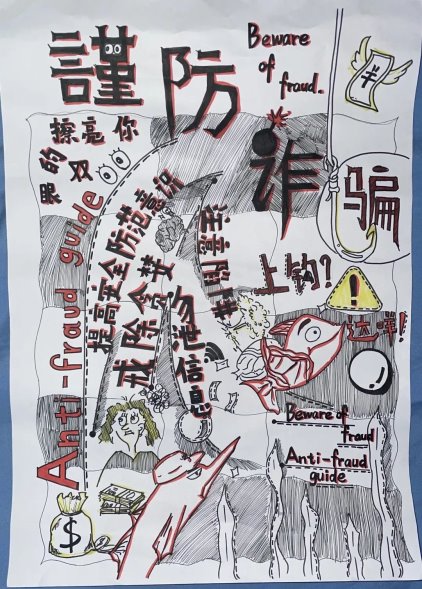 謹防诈骗
Beware
of
fraud.
擦亮你
的双
眼
Anti-fraud guide
提高安全防范意识
戒除贪婪
上钩?
!
Beware of
fraud
Anti-fraud
guide
$